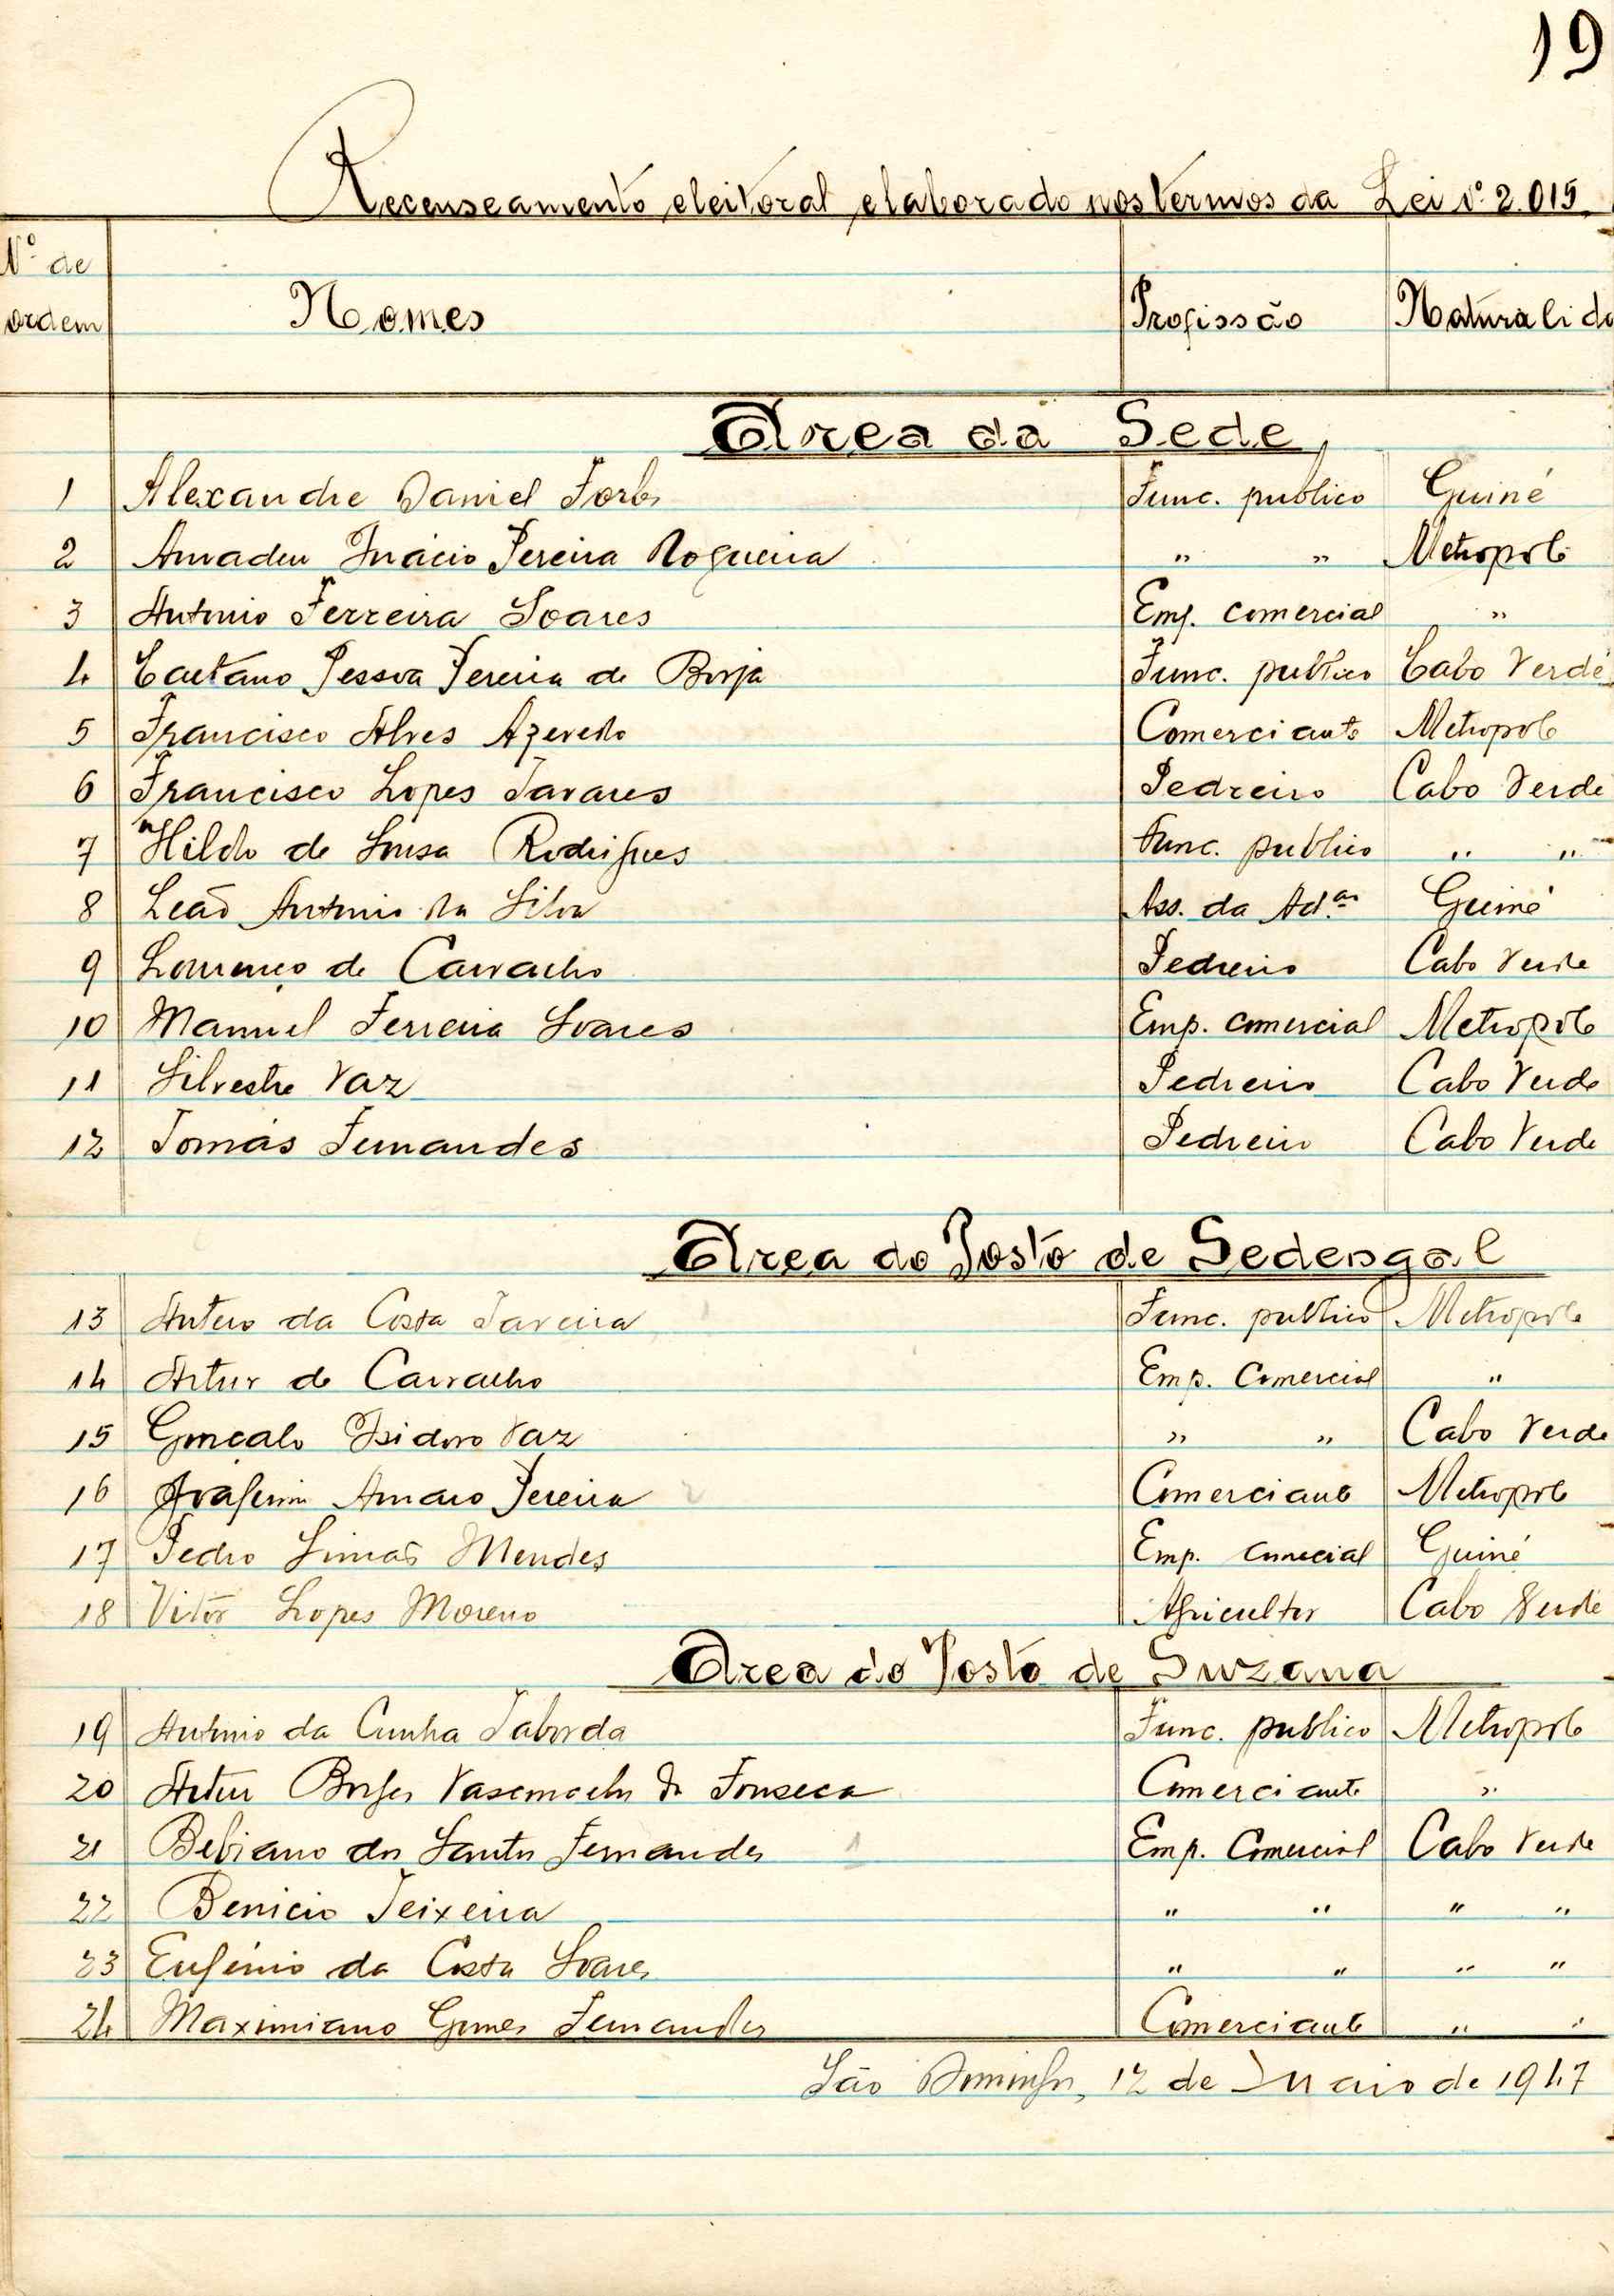 19
Recenseamento eleitoral elaborado nos termos da Lei nº 2.015.
Nº de ordem Nomes Profissão Naturalida
Area da Sede
1 Alexandre Daniel Forbs Func. publico Guiné
2 Amadeu Inácio Pereira Nogueira " " Metropole
3 Antonio Ferreira Soares Emp. comercial "
4 Caetano Pessoa Pereira de Borja Func. publico Cabo Verde
5 Francisco Alves Azevedo Comerciante Metropole
6 Francisco Lopes Tavares Pedreiro Cabo Verde
7 Hildo de Sousa Rodrigues Func. publico " "
8 Leão Antonio da Silva Ass. da Ad.ão Guiné
9 Lourenço de Carvalho Pedreiro Cabo Verde
10 Manuel Ferreira Soares Emp. comercial Metropole
11 Silvestre Vaz Pedreiro Cabo Verde
12 Tomás Fernandes Pedreiro Cabo Verde
Area do Posto de Sedengal
13 Antero da Costa Taveira Func. publico Metropole
14 Artur de Carvalho Emp. Comercial "
15 Gonçalo Isidoro Vaz " " Cabo Verde
16 Amaro Pereira Comerciante Metropole
17 Pedro Simas Mendes Emp. comercial Guiné
18 Vitór Lopes Moreno Agricultor Cabo Verde
Area do Posto de Suzana
19 Antonio da Cunha Taborda Func. publico Metropole
20 Artur Borges Vasconcelos da Fonseca Comerciante "
21 Bebiano dos Santos Fernandes Emp. Comercial Cabo Verde
22 Benicio Teixeira " " " "
23 Eugénio da Costa Soares " " " "
24 Maximiano Gomes Fernandes Comerciante " "
São Domingos, 12 de Maio de 1947